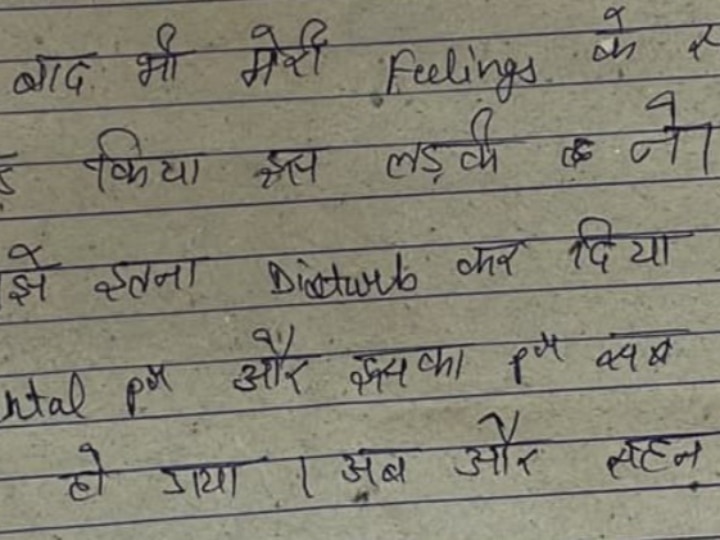 बाद भी मेरी Feelings के
किया इस लड़की ने।
इतना Disturb कर दिया
ntal pm और इसका pm सब
हो गया । अब और सहन